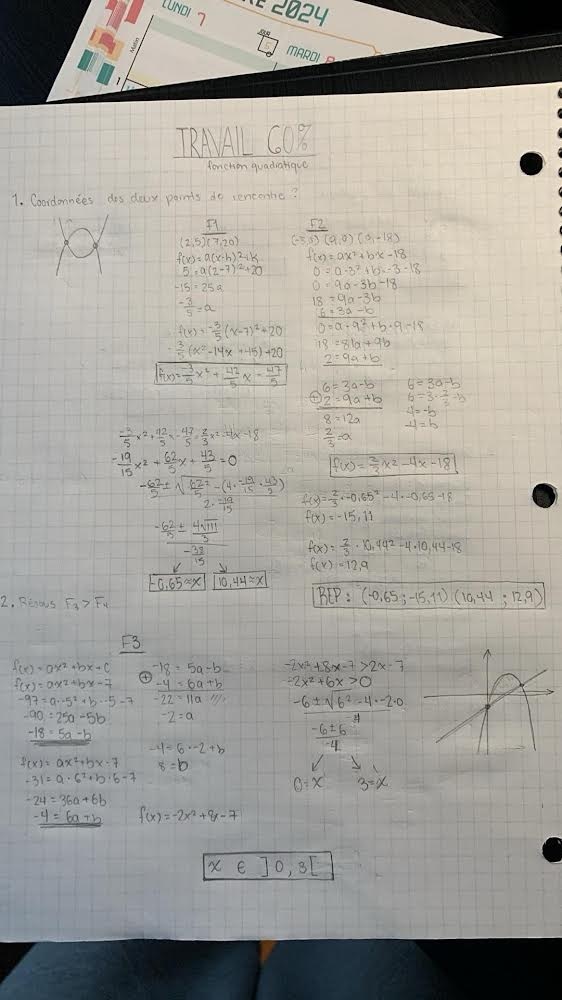 LUNDI 7
2024
MARDI 8
Matin
1
TRAVAIL 60%
fonction quadratique
1. Coordonnées des deux points de rencontre ?
F1
(2,5)(7,20)
f(x)=a(x-h)²+k
5=a(2-7)²+20
-15=25a
-3/5=a
f(x)=-3/5(x-7)²+20
-3/5(x²-14x+45)+20
f(x)=-3/5x²+42/5x-47/5
F2
(-3,0)(9,0)(0,-18)
f(x)=ax²+bx-18
0=a·-3²+b·-3-18
0=9a-3b-18
18=9a-3b
6=3a-b
0=a·9²+b·9-18
18=81a+9b
2=9a+b
6=3a-b
+ 2=9a+b
8=12a
2/3=a
6=3a-b
6=3·2/3-b
4=-b
-4=b
f(x)=2/3x²-4x-18
-3/5x²+42/5x-47/5=2/3x²-4x-18
-19/15x²+62/5x+43/5=0
-62/5±√(62²/5-(4·-19/15·43/5))
2·-19/15
-62/5±4√111/3
-38/15
-0,65≈x
10,44≈x
f(x)=2/3·-0,65²-4·-0,65-18
f(x)=-15,11
f(x)=2/3·10,44²-4·10,44-18
f(x)=12,9
REP: (-0,65;-15,11) (10,44;12,9)
2. Résous F3>F4
F3
f(x)=ax²+bx+c
f(x)=ax²+bx-7
-97=a·-5²+b·-5-7
-90=25a-5b
-18=5a-b
f(x)=ax²+bx-7
-31=a·6²+b·6-7
-24=36a+6b
-4=6a+b
-18=5a-b
+ -4=6a+b
-22=11a
-2=a
-4=6·-2+b
8=b
f(x)=-2x²+8x-7
-2x²+8x-7>2x-7
-2x²+6x>0
-6±√(6²-4·-2·0)
-4
-6±6
-4
0=x
3=x
x ∈ ]0,3[